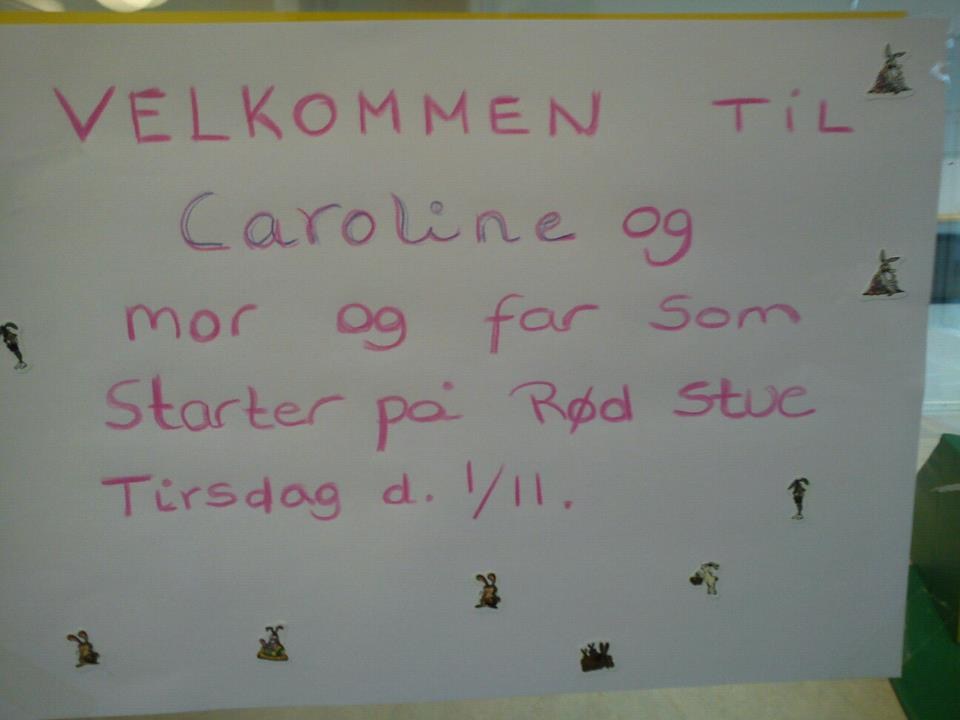 VELKOMMEN TIL
Caroline og
mor og far som
Starter på Rød Stue
Tirsdag d. 1/11.